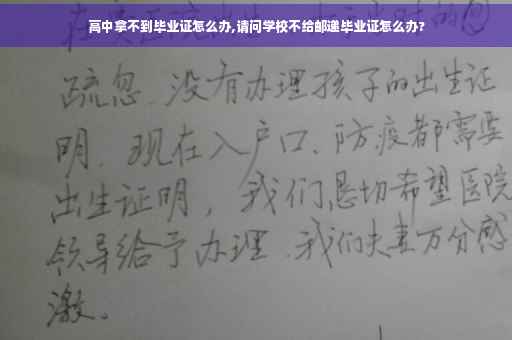 高中拿不到毕业证怎么办,请问学校不给邮递毕业证怎么办?
疏忽.没有办理孩子的出生证
明.现在入户口、防疫都需要
出生证明，我们恳切希望医院
领导给予办理.我们夫妻万分感
激。